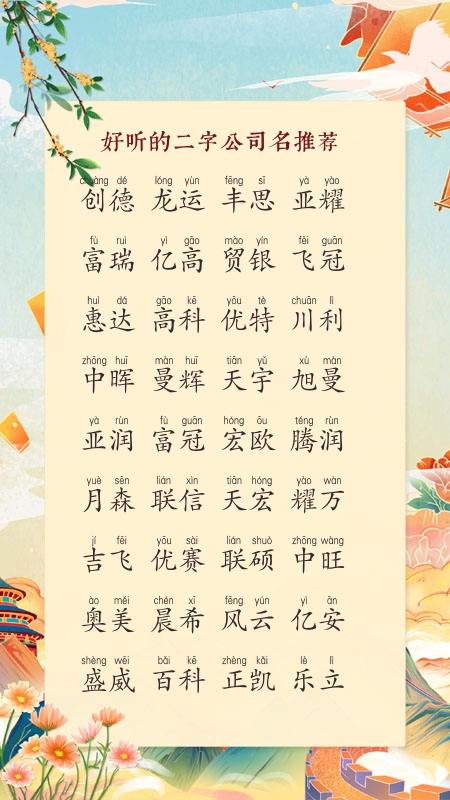 好听的二字公司名推荐
chuàng dé lóng yùn fēng sī yà yào
创德 龙运 丰思 亚耀
fù ruì yì gāo mào yín fēi guān
富瑞 亿高 贸银 飞冠
huì dá gāo kē yōu tè chuān lì
惠达 高科 优特 川利
zhōng huī màn huī tiān yǔ xù màn
中晖 曼辉 天宇 旭曼
yà rùn fù guān hóng ōu téng rùn
亚润 富冠 宏欧 腾润
yuè sēn lián xìn tiān hóng yào wàn
月森 联信 天宏 耀万
jí fēi yōu sài lián shuò zhōng wàng
吉飞 优赛 联硕 中旺
ào měi chén xī fēng yún yì ān
奥美 晨希 风云 亿安
shèng wēi bǎi kē zhèng kǎi lè lì
盛威 百科 正凯 乐立